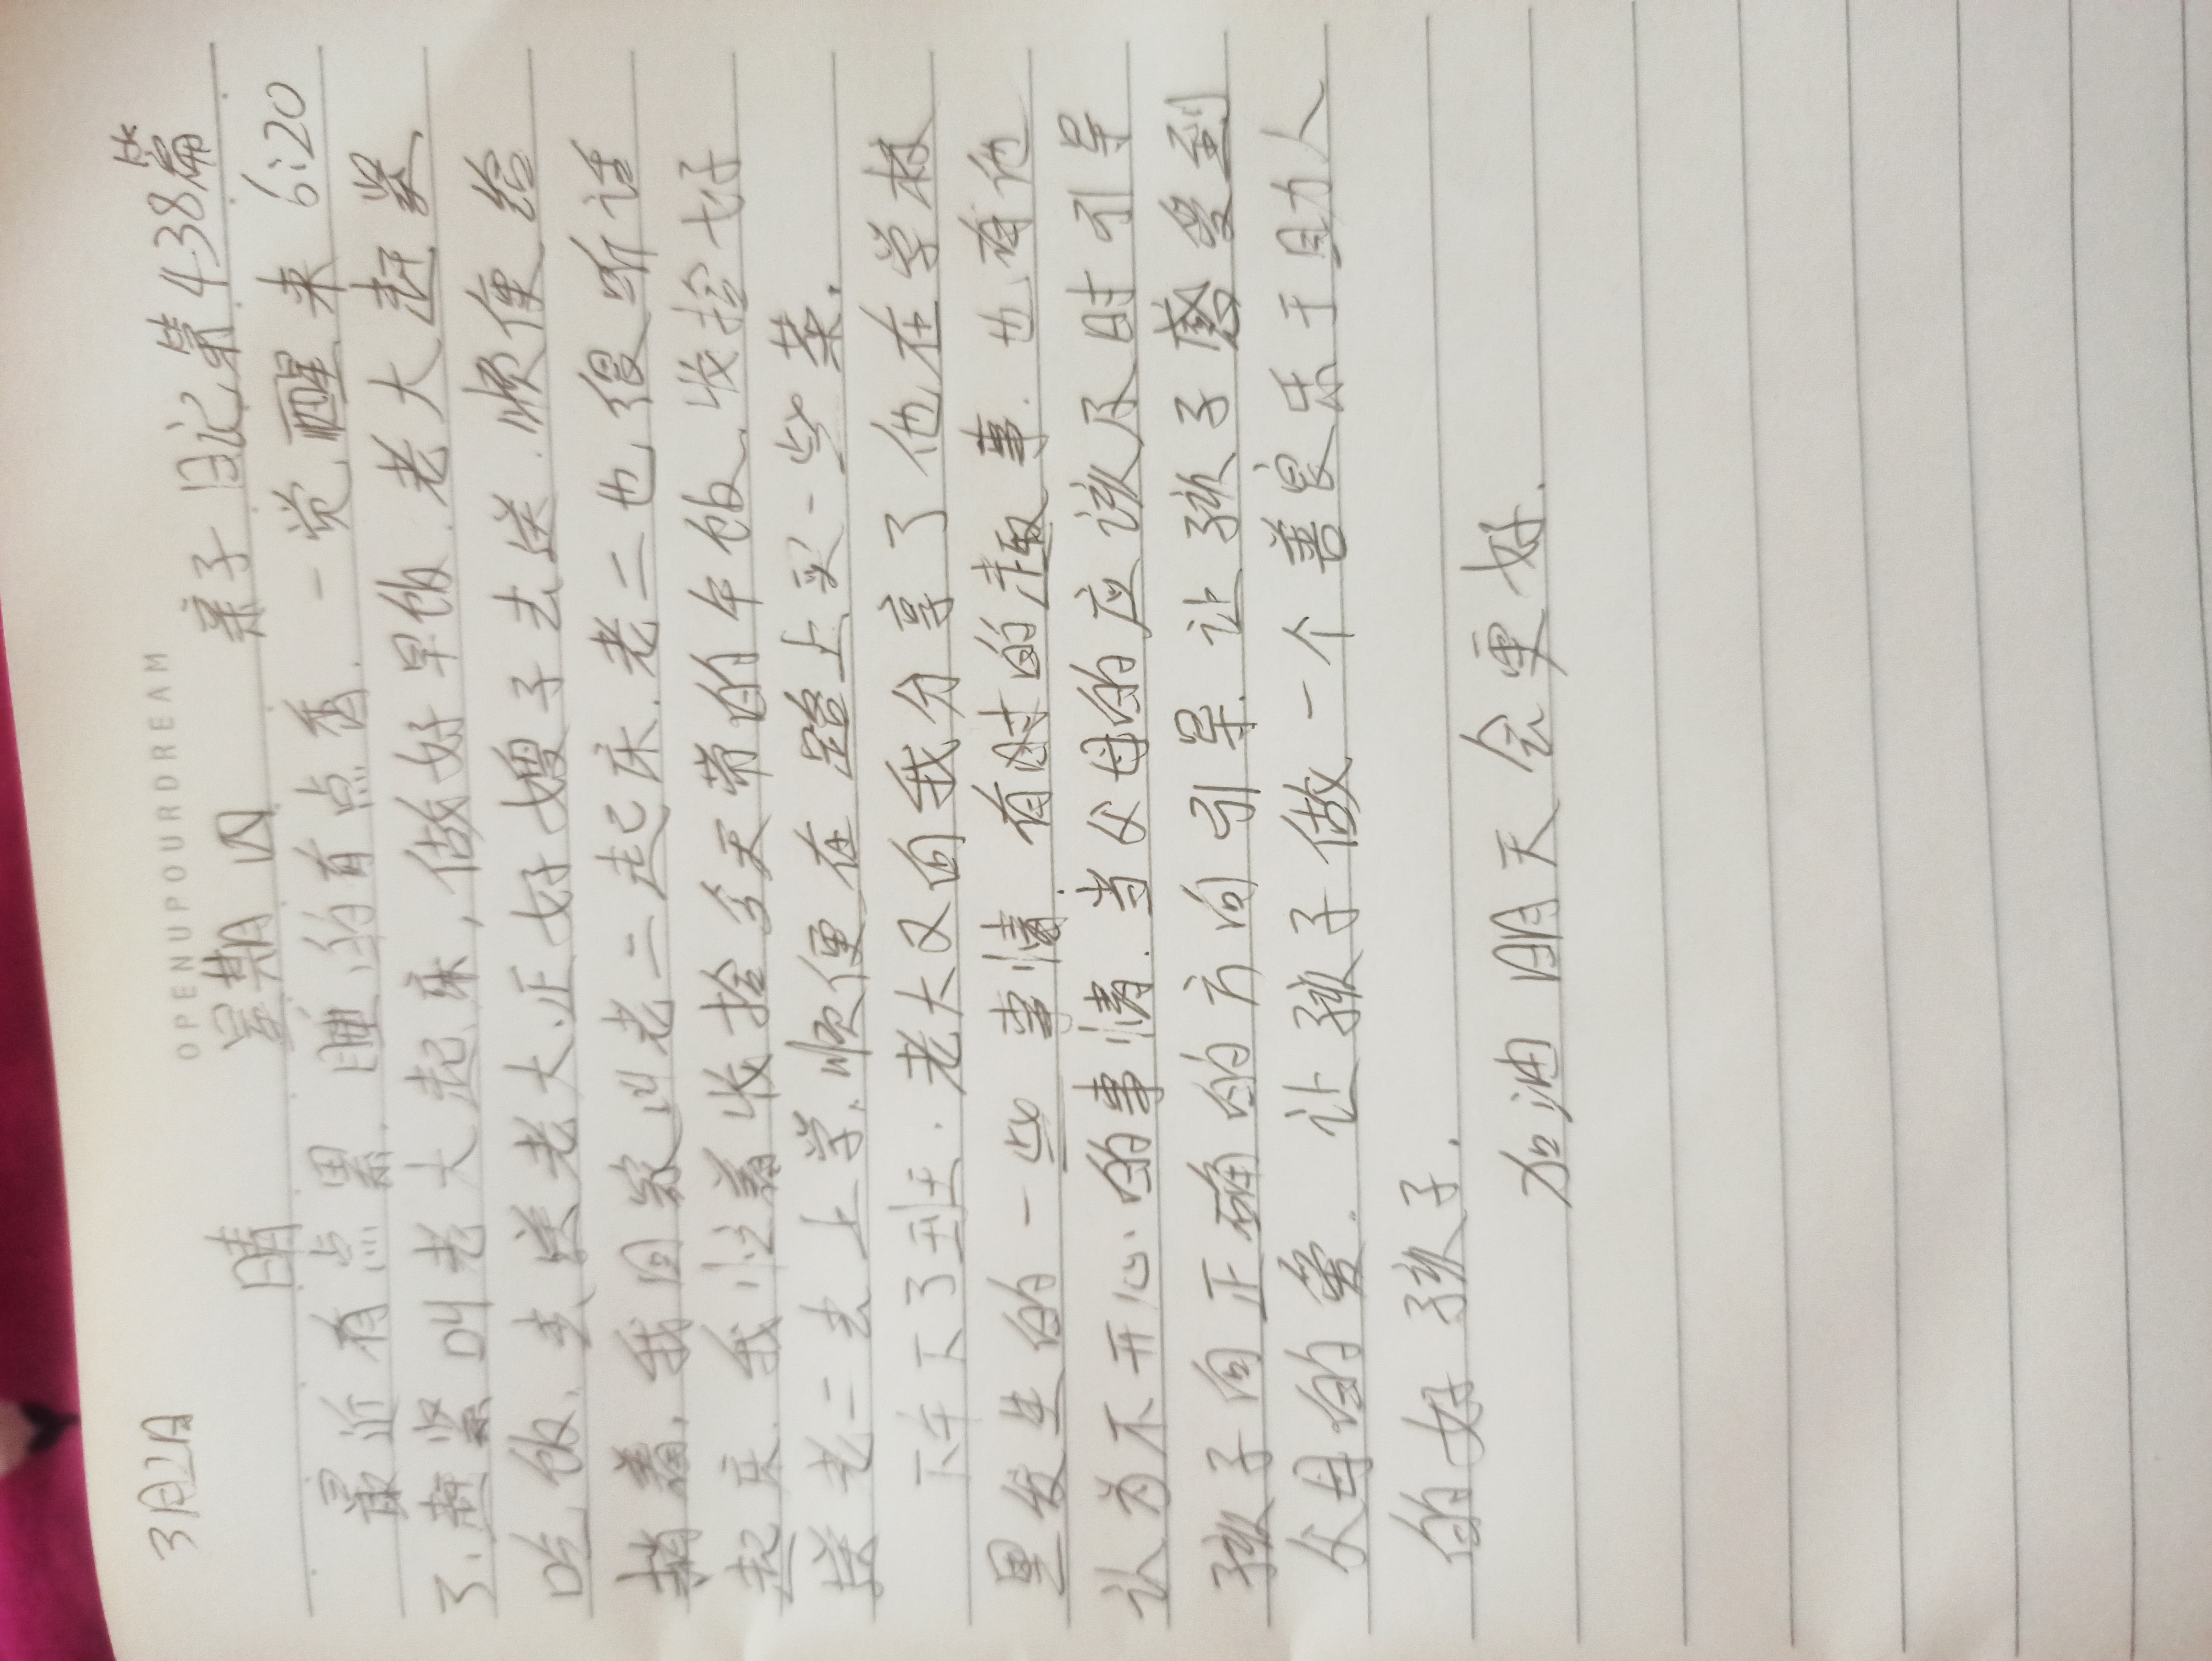 OPENUPOURDREAM
3月2日
晴 星期四 亲子日记第438篇
最近有点累，睡的有点香．一觉醒来 6:20
了．赶紧叫老大起床，做好早饭．老大赶紧
吃饭，去送老大．正好嫂子去送．顺便给
捎着，我回家叫老二起床．老二也很听话
起床．我忙着收拾今天带的午饭．收拾好
送老二去上学．顺便在路上买一些菜．
下午下了班．老大又向我分享了他在学校
里发生的一些事情．有时的趣事．也有他
认为不开心的事情．当父母的应该及时引导
孩子向正确的方向引导．让孩子感受到
父母的爱．让孩子做一个善良乐于助人
的好孩子．
加油明天会更好．